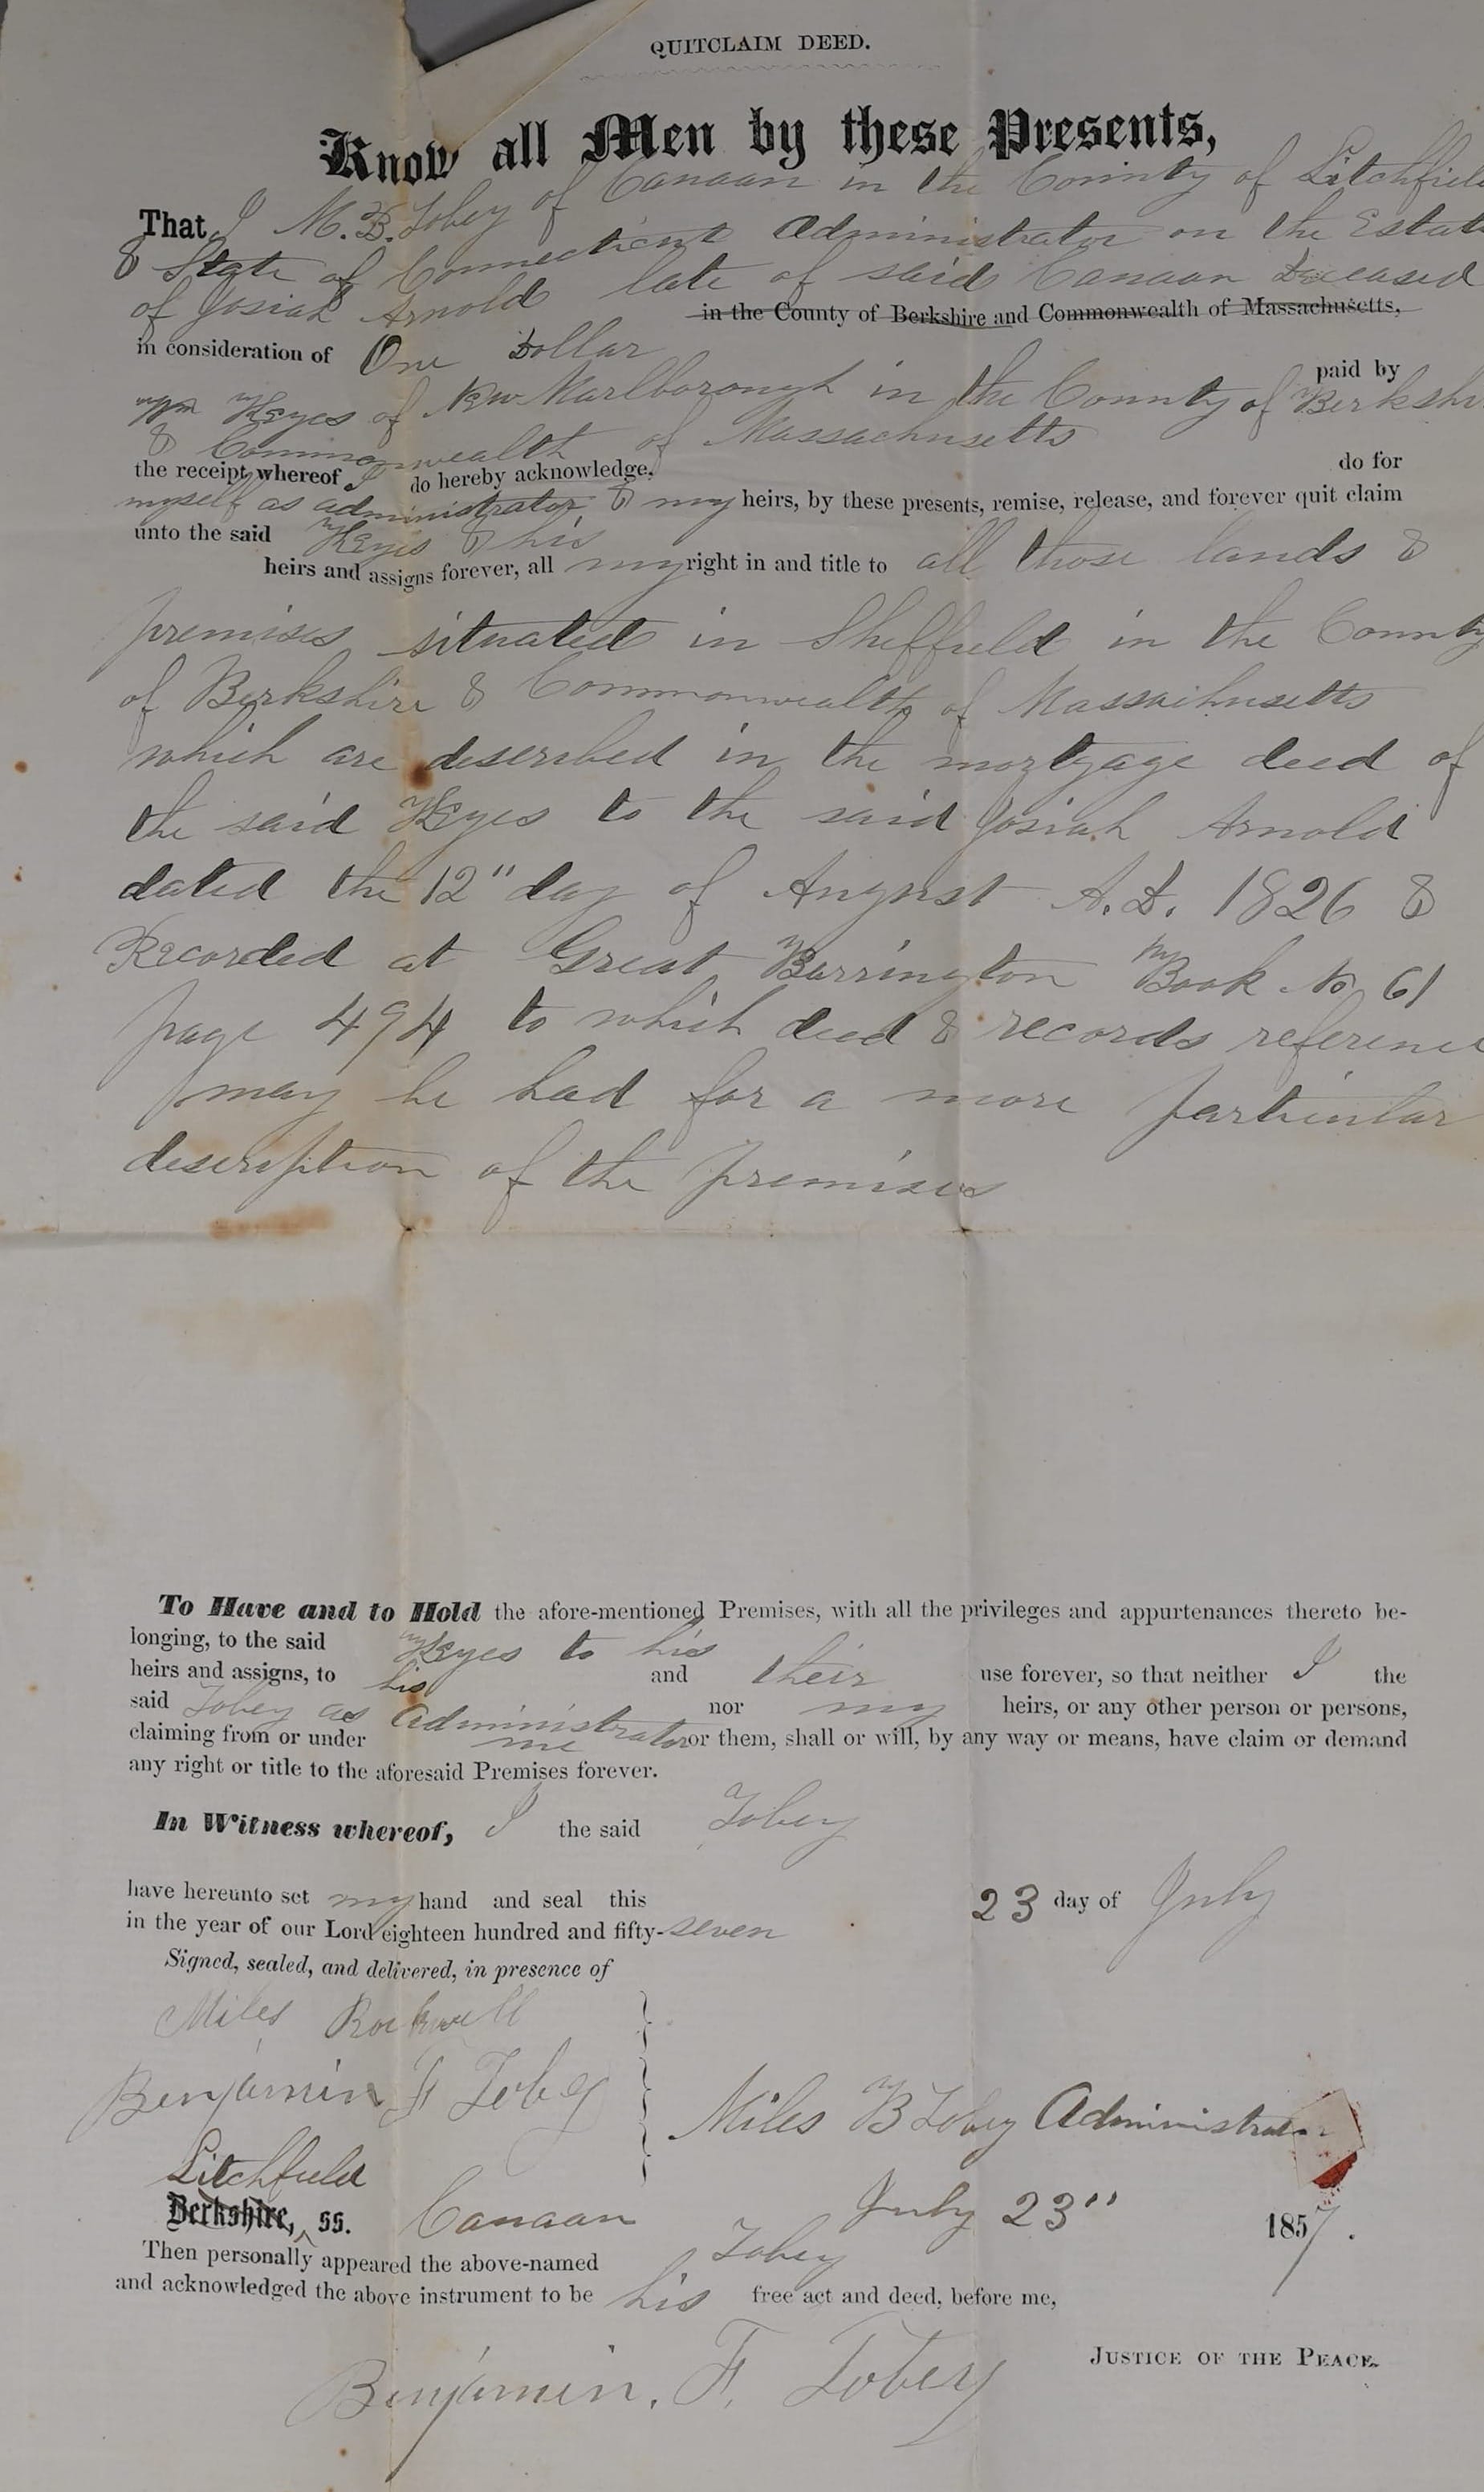 QUITCLAIM DEED.
Know all Men by these Presents,
That I M. B. Tobey of Canaan in the County of Litchfield
& State of Connecticut Administrator on the Estate
of Josiah Arnold late of said Canaan Deceased
in the County of Berkshire and Commonwealth of Massachusetts,
in consideration of One Dollar
paid by
Wm Keyes of New Marlborough in the County of Berkshi
& Commonwealth of Massachusetts
the receipt whereof I do hereby acknowledge, do for
myself as administrator & my heirs, by these presents, remise, release, and forever quit claim
unto the said Keyes & his
heirs and assigns forever, all my right in and title to all those lands &
premises situated in Sheffield in the County
of Berkshire & Commonwealth of Massachusetts
which are described in the mortgage deed of
the said Keyes to the said Josiah Arnold
dated the 12" day of August A.D. 1826 &
Recorded at Great Barrington Book No 61
page 494 to which deed & records reference
may be had for a more particular
description of the premises
To Have and to Hold the afore-mentioned Premises, with all the privileges and appurtenances thereto be-
longing, to the said Keyes to his
heirs and assigns, to his and their use forever, so that neither I the
said Tobey as Administrator nor my heirs, or any other person or persons,
claiming from or under me or them, shall or will, by any way or means, have claim or demand
any right or title to the aforesaid Premises forever.
In Witness whereof, I the said Tobey
have hereunto set my hand and seal this 23 day of July
in the year of our Lord eighteen hundred and fifty-seven
Signed, sealed, and delivered, in presence of
Miles Rockwell
Benjamin F Tobey
Miles B Tobey Administrator
Litchfield
Berkshire, ss. Canaan July 23" 1857.
Then personally appeared the above-named Tobey
and acknowledged the above instrument to be his free act and deed, before me,
Benjamin. F. Tobey
JUSTICE OF THE PEACE.